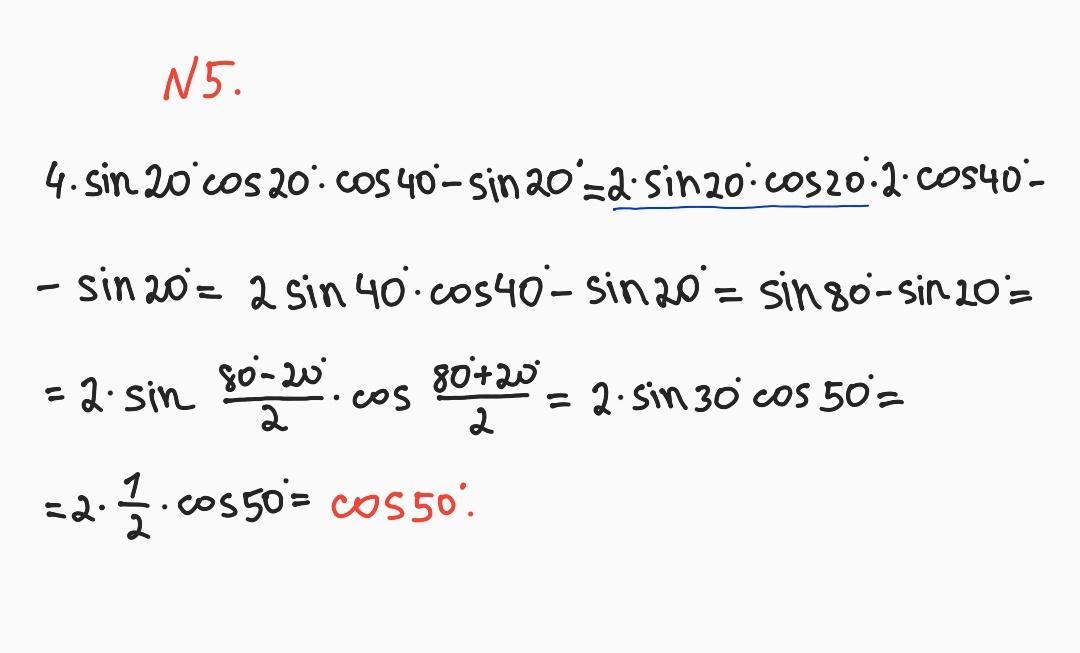 N5.
4·sin20°cos20°·cos40°-sin20°=2·sin20°·cos20°·2·cos40°-
- sin20°= 2 sin40°·cos40°- sin20°= sin80°-sin20°=
= 2·sin (80°-20°)/2 · cos (80°+20°)/2 = 2·sin30° cos50°=
=2· 1/2 ·cos50°= cos50°.